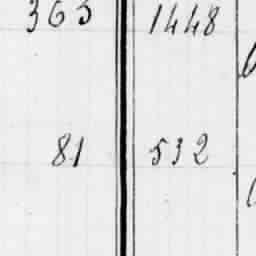 363 1448
81 532